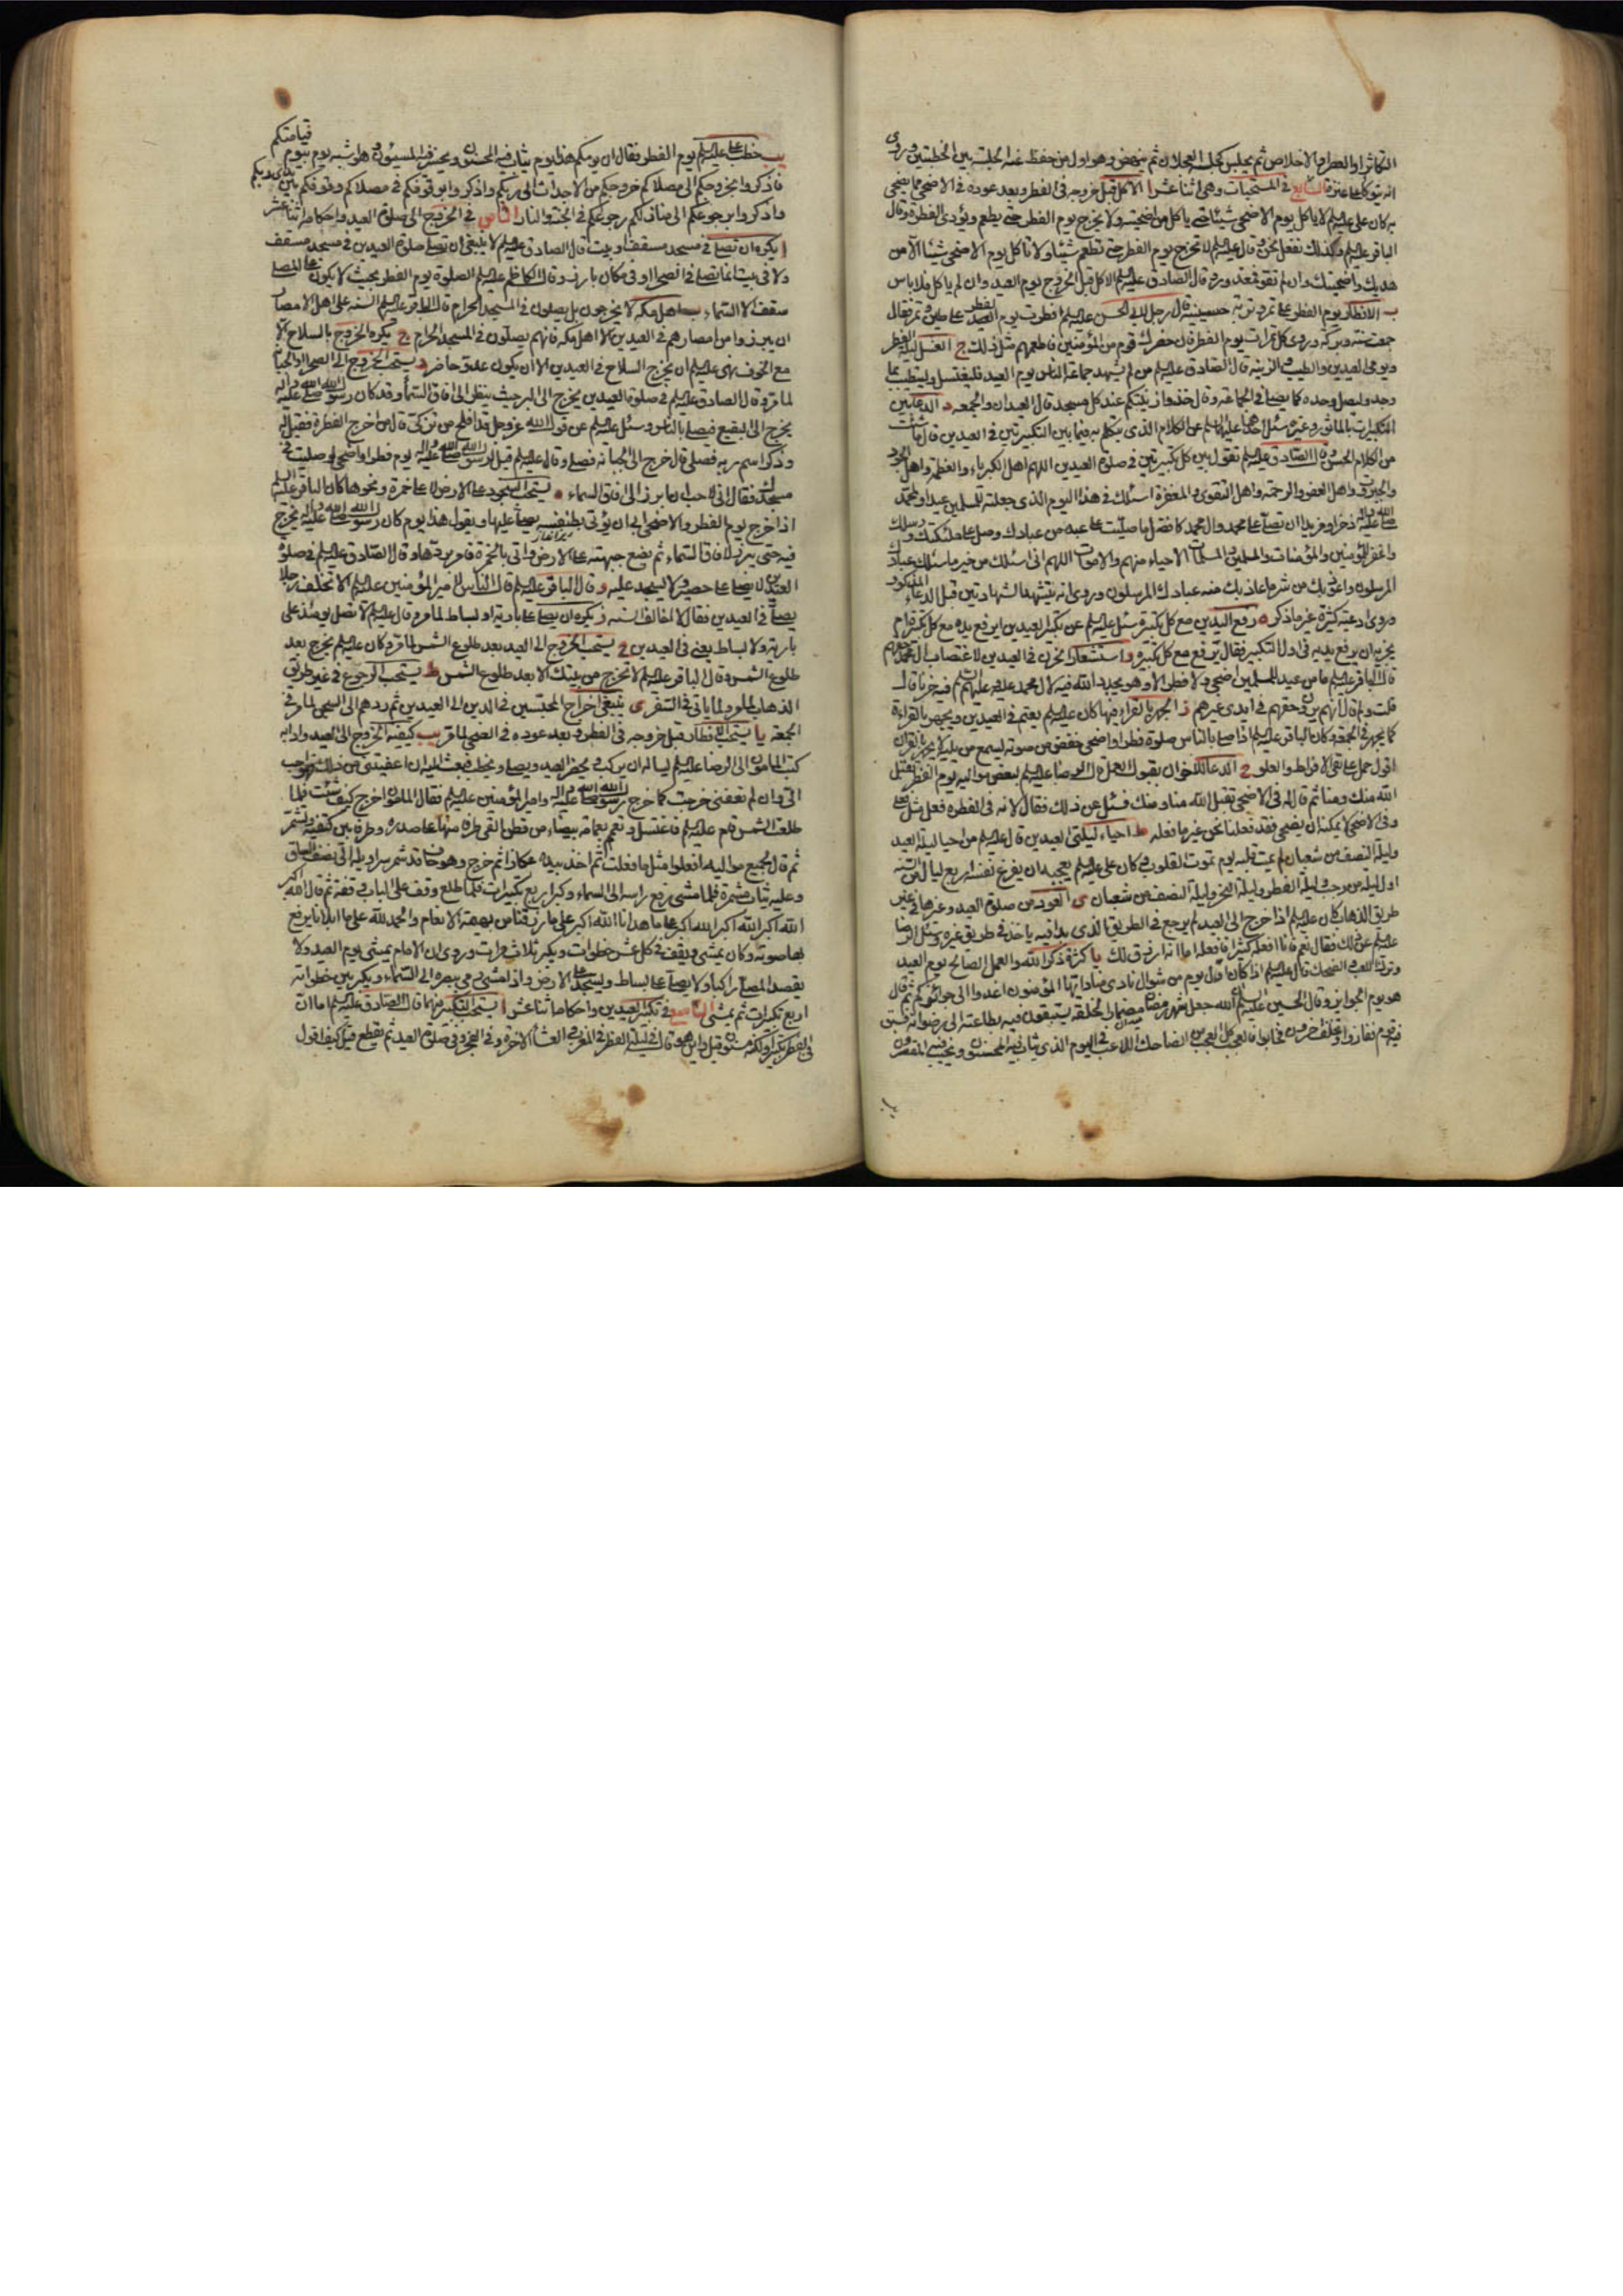 التكاثر او العصر او الاخلاص ثم يجلس كجلسة العجلان ثم ينهض وهو اول من حفظ عنه الجلسة بين الخطبتين وروى
انه يتوكأ على عنزة السابع في المستحبات وهي اثنا عشر ا الاكل قبل خروجه في الفطر وبعد عوده في الاضحى مما يضحى
به كان علي عليه السلم لا ياكل يوم الاضحى شيئا حتى ياكل من اضحيته ولا يخرج يوم الفطر حتى يطعم ويؤدي الفطرة وقال
الباقر عليه السلم وكذلك نفعل نحن وقال عليه السلم لا تخرج يوم الفطر حتى تطعم شيئا ولا تاكل يوم الاضحى شيئا الا من
هديك واضحيتك وان لم تقو فمعذور وقال الصادق عليه السلم الاكل قبل الخروج يوم العيد وان لم ياكل فلا باس
ب الافطار يوم الفطر على تمر وتربة حسينية قال رجل لابي الحسن عليه السلم افطرت يوم الفطر على طين وتمر فقال
جمعت سنة وبركة وروى كل تمرات يوم الفطر فان حضرك قوم من المؤمنين فاطعمهم مثل ذلك ج الغسل ليلة الفطر
ويومي العيدين والطيب والزينة قال الصادق عليه السلم من لم يشهد جماعة الناس يوم العيد فليغتسل وليتطيب بما
وجد وليصل وحده كما يصلي في الجماعة وقال خذوا زينتكم عند كل مسجد قال العيدان والجمعة د الدعاء بين
التكبيرات بالماثور وغيره سئل احدهما عليهما السلم عن الكلام الذي يتكلم به فيما بين التكبيرتين في العيدين قال ما شئت
من الكلام الحسن وقال الصادق عليه السلم تقول بين كل تكبيرتين في صلوة العيدين اللهم اهل الكبرياء والعظمة واهل الجود
والجبروت واهل العفو والرحمة واهل التقوى والمغفرة اسئلك في هذا اليوم الذي جعلته للمسلمين عيدا ولمحمد
صلى الله عليه واله ذخرا ومزيدا ان تصلي على محمد وال محمد كافضل ما صليت على عبد من عبادك وصل على ملئكتك ورسلك
واغفر للمؤمنين والمؤمنات والمسلمين والمسلمات الاحياء منهم والاموات اللهم اني اسئلك من خير ما سئلك عبادك
المرسلون واعوذ بك من شر ما عاذ بك منه عبادك المرسلون وروى انه يتشهد الشهادتين قبل الدعاء المذكور
وروى ادعية كثيرة غير ما ذكر ه رفع اليدين مع كل تكبيرة سئل عليه السلم عن تكبير العيدين ايرفع يده مع كل تكبيرة ام
يجزيه ان يرفع يديه في اول التكبير فقال يرفع مع كل تكبيرة و استشعار الحزن في العيدين لاغتصاب ال محمد حقهم
قال الباقر عليه السلم ما من عيد للمسلمين اضحى ولا فطر الا وهو يجدد الله فيه لال محمد عليه وعليهم السلم فيه حزنا قال
قلت ولم قال لانهم يرون حقهم في ايدي غيرهم ز الجهر بالقراءة فيها كان عليه السلم يعتم في العيدين ويجهر بالقراءة
كما يجهر في الجمعة كان الباقر عليه السلم اذا صلى بالناس صلوة فطر او اضحى خفض من صوته يسمع من يليه لا يجهر بالقران
اقول حمل على نفي الافراط والعلو ح الدعاء للاخوان بقبول العمل قال الرضا عليه السلم لبعض مواليه يوم الفطر تقبل
الله منك ومنا ثم قال له في الاضحى تقبل الله منا ومنك فسئل عن ذلك فقال لانه في الفطر فعل مثل فعلي
وفي الاضحى لا يمكنه ان يضحي فقد فعلنا نحن غير ما فعله ط احياء ليلتي العيدين قال عليه السلم من احيا ليلة العيد
وليلة النصف من شعبان لم يمت قلبه يوم تموت القلوب وكان علي عليه السلم يعجبه ان يفرغ نفسه اربع ليال من السنة
اول ليلة من رجب وليلة الفطر وليلة النحر وليلة النصف من شعبان ى العود من صلوة العيد وغيرها في غير
طريق الذهاب كان عليه السلم اذا خرج الى العيد لم يرجع في الطريق الذي بدا فيه ياخذ في طريق غيره وسئل الرضا
عليه السلم عن ذلك فقال نعم فانا افعله كثيرا فافعله اما انه ارزق لك يا كثرة ذكر الله والعمل الصالح يوم العيد
وترك اللعب والضحك قال عليه السلم اذا كان اول يوم من شوال نادى مناد ايها المؤمنون اغدوا الى جوائزكم ثم قال
هو يوم الجوائز وقال الحسين عليه السلم ان الله جعل شهر رمضان مضمارا لخلقه يستبقون فيه بطاعته الى رضوانه فسبق
فيه قوم ففازوا وتخلف اخرون فخابوا فالعجب كل العجب من الضاحك اللاعب في اليوم الذي يثاب فيه المحسنون ويخيب فيه المقصرون
يب
قيامتكم
يب خطب علي عليه السلم يوم الفطر فقال ان يومكم هذا يوم يثاب فيه المحسنون ويخسر فيه المسيئون وهو اشبه يوم بيوم
فاذكروا بخروجكم الى مصلاكم خروجكم من الاجداث الى ربكم واذكروا بوقوفكم في مصلاكم وقوفكم بين يدي ربكم
واذكروا برجوعكم الى منازلكم رجوعكم في الجنة والنار الثامن في الخروج الى صلوة العيد واحكامه اثنا عشر
ا يكره ان تصلى في مسجد مسقف او بيت قال الصادق عليه السلم لا ينبغي ان تصلى صلوة العيدين في مسجد مسقف
ولا في بيت انما تصلى في الصحراء او في مكان بارز وقال الكاظم عليه السلم الصلوة يوم الفطر بحيث لا يكون على المصلي
سقف الا السماء ب اهل مكة لا يخرجون بل يصلون في المسجد الحرام قال الباقر عليه السلم السنة على اهل الامصار
ان يبرزوا من امصارهم في العيدين الا اهل مكة فانهم يصلون في المسجد الحرام ج يكره الخروج بالسلاح الا
مع الخوف نهى عليه السلم ان يخرج السلاح في العيدين الا ان يكون عدو حاضر د يستحب الخروج الى الصحراء والجبانة
لما مر وقال الصادق عليه السلم في صلوة العيدين يخرج الى البر حيث ينظر الى افاق السماء وقد كان رسول الله صلى الله عليه واله
يخرج الى البقيع فيصلي بالناس وسئل عليه السلم عن قول الله عز وجل قد افلح من تزكى قال من اخرج الفطرة فقيل له
وذكر اسم ربه فصلى قال خرج الى الجبانة فصلى وقال عليه السلم قيل لرسول الله صلى الله عليه واله يوم فطر او اضحى لو صليت في
مسجدك فقال اني لاحب ان ابرز الى افاق السماء ه يستحب السجود على الارض لا على خمرة ونحوها كان الباقر عليه السلم
اذا خرج يوم الفطر والاضحى ابى ان يؤتى بطنفسة يصلي عليها ويقول هذا يوم كان رسول الله صلى الله عليه واله يخرج
فيه حتى يبرز لافاق السماء ثم يضع جبهته على الارض واتي بالخمرة فامر بردها وقال الصادق عليه السلم في صلوة
العيدين لا يصلى على حصير ولا يسجد عليه و قال الباقر عليه السلم قال الناس لامير المؤمنين عليه السلم الا تخلف رجلا
يصلي في العيدين فقال لا اخالف السنة ز يكره ان يصلى على بارية او بساط لما مر وقال عليه السلم لا تصل يومئذ على
بارية ولا بساط يعني في العيدين ح يستحب الخروج الى العيد بعد طلوع الشمس لما مر وكان عليه السلم يخرج بعد
طلوع الشمس وقال الباقر عليه السلم لا تخرج من بيتك الا بعد طلوع الشمس ط يستحب الرجوع في غير طريق
الذهاب لما مر ولما ياتي في السفر ى ينبغي اخراج المحبسين في الدين الى العيدين ثم ردهم الى السجن لما مر في
الجمعة يا يستحب الافطار قبل خروجه في الفطر وبعد عوده في الضحى لما مر يب كيفية الخروج الى العيد وادابه
كتب المامون الى الرضا عليه السلم يساله ان يركب ويحضر العيد ويصلي ويخطب فبعث اليه ان اعفيتني من ذلك فهو احب
الي وان لم تعفني خرجت كما خرج رسول الله صلى الله عليه واله وامير المؤمنين عليه السلم فقال المامون اخرج كيف شئت فلما
طلعت الشمس قام عليه السلم فاغتسل وتعمم بعمامة بيضاء من قطن القى طرفا منها على صدره وطرفا بين كتفيه وتشمر
ثم قال لجميع مواليه افعلوا مثل ما فعلت ثم اخذ بيده عكازا ثم خرج وهو حاف قد شمر سراويله الى نصف الساق
وعليه ثياب مشمرة فلما مشى رفع راسه الى السماء وكبر اربع تكبيرات فلما طلع وقف على الباب وقفة ثم قال الله اكبر
الله اكبر الله اكبر الله اكبر على ما هدانا الله اكبر على ما رزقنا من بهيمة الانعام والحمد لله على ما ابلانا يرفع
بها صوته وكان يمشي ويقف في كل عشر خطوات ويكبر ثلاث مرات وروى ان الامام يمشي يوم العيد ولا
يقصد المصلى راكبا ولا يصلي على بساط ويسجد على الارض واذا مشى رمى ببصره الى السماء ويكبر بين خطواته
اربع تكبيرات ثم يمشي التاسع في تكبير العيدين واحكامه اثنا عشر ا يستحب التكبير فيهما قال الصادق عليه السلم اما ان
في الفطر تكبيرا ولكنه مسنون قيل واين هو قال في ليلة الفطر في المغرب والعشاء الاخرة وفي الفجر وفي صلوة العيد ثم يقطع قيل كيف اقول